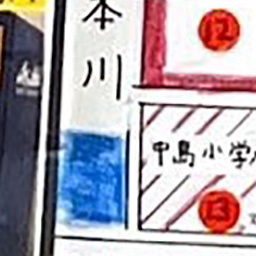 本川
12
中島小学
13